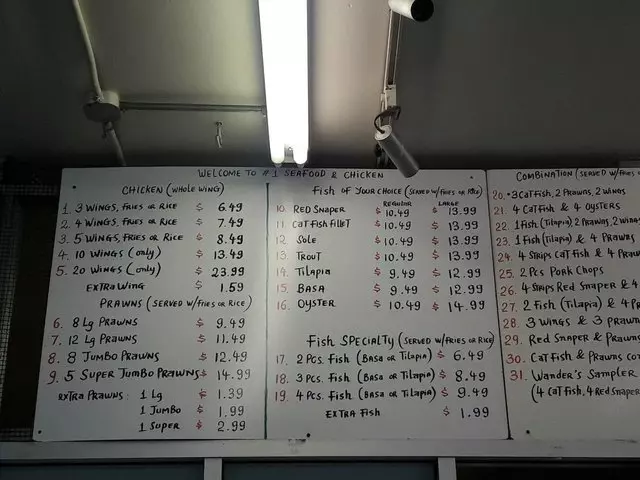 WELCOME TO #1 SEAFOOD & CHICKEN
CHICKEN (WHOLE WING)
1. 3 WINGS, FRIES OR RICE $ 6.49
2. 4 WINGS, FRIES OR RICE $ 7.49
3. 5 WINGS, FRIES OR RICE $ 8.49
4. 10 WINGS (ONLY) $ 13.49
5. 20 WINGS (ONLY) $ 23.99
EXTRA WING $ 1.59
PRAWNS (SERVED W/FRIES OR RICE)
6. 8 Lg PRAWNS $ 9.49
7. 12 Lg PRAWNS $ 11.49
8. 8 JUMBO PRAWNS $ 12.49
9. 5 SUPER JUMBO PRAWNS $ 14.99
EXTRA PRAWNS: 1 Lg $ 1.39
1 JUMBO $ 1.99
1 SUPER $ 2.99
FISH OF YOUR CHOICE (SERVED W/FRIES OR RICE)
REGULAR LARGE
10. RED SNAPER $ 10.49 $ 13.99
11. CATFISH FILLET $ 10.49 $ 13.99
12. SOLE $ 10.49 $ 13.99
13. TROUT $ 10.49 $ 13.99
14. TILAPIA $ 9.49 $ 12.99
15. BASA $ 9.49 $ 12.99
16. OYSTER $ 10.49 $ 14.99
FISH SPECIALTY (SERVED W/FRIES OR RICE)
17. 2 PCS. FISH (BASA OR TILAPIA) $ 6.49
18. 3 PCS. FISH (BASA OR TILAPIA) $ 8.49
19. 4 PCS. FISH (BASA OR TILAPIA) $ 9.49
EXTRA FISH $ 1.99
COMBINATION (SERVED W/FRIES O
20. 3 CATFISH, 2 PRAWNS, 2 WINGS
21. 4 CATFISH & 4 OYSTERS
22. 1 FISH (TILAPIA) 2 PRAWNS, 2 WING
23. 1 FISH (TILAPIA) & 4 PRAWNS
24. 4 STRIPS CATFISH & 4 PRAWN
25. 2 PCS PORK CHOPS
26. 4 STRIPS RED SNAPER & 4
27. 2 FISH (TILAPIA) & 4 P
28. 3 WINGS & 3 PRAWN
29. RED SNAPER & PRAWN
30. CATFISH & PRAWNS CO
31. WANDER'S SAMPLER
(4 CATFISH, 4 RED SNAPER